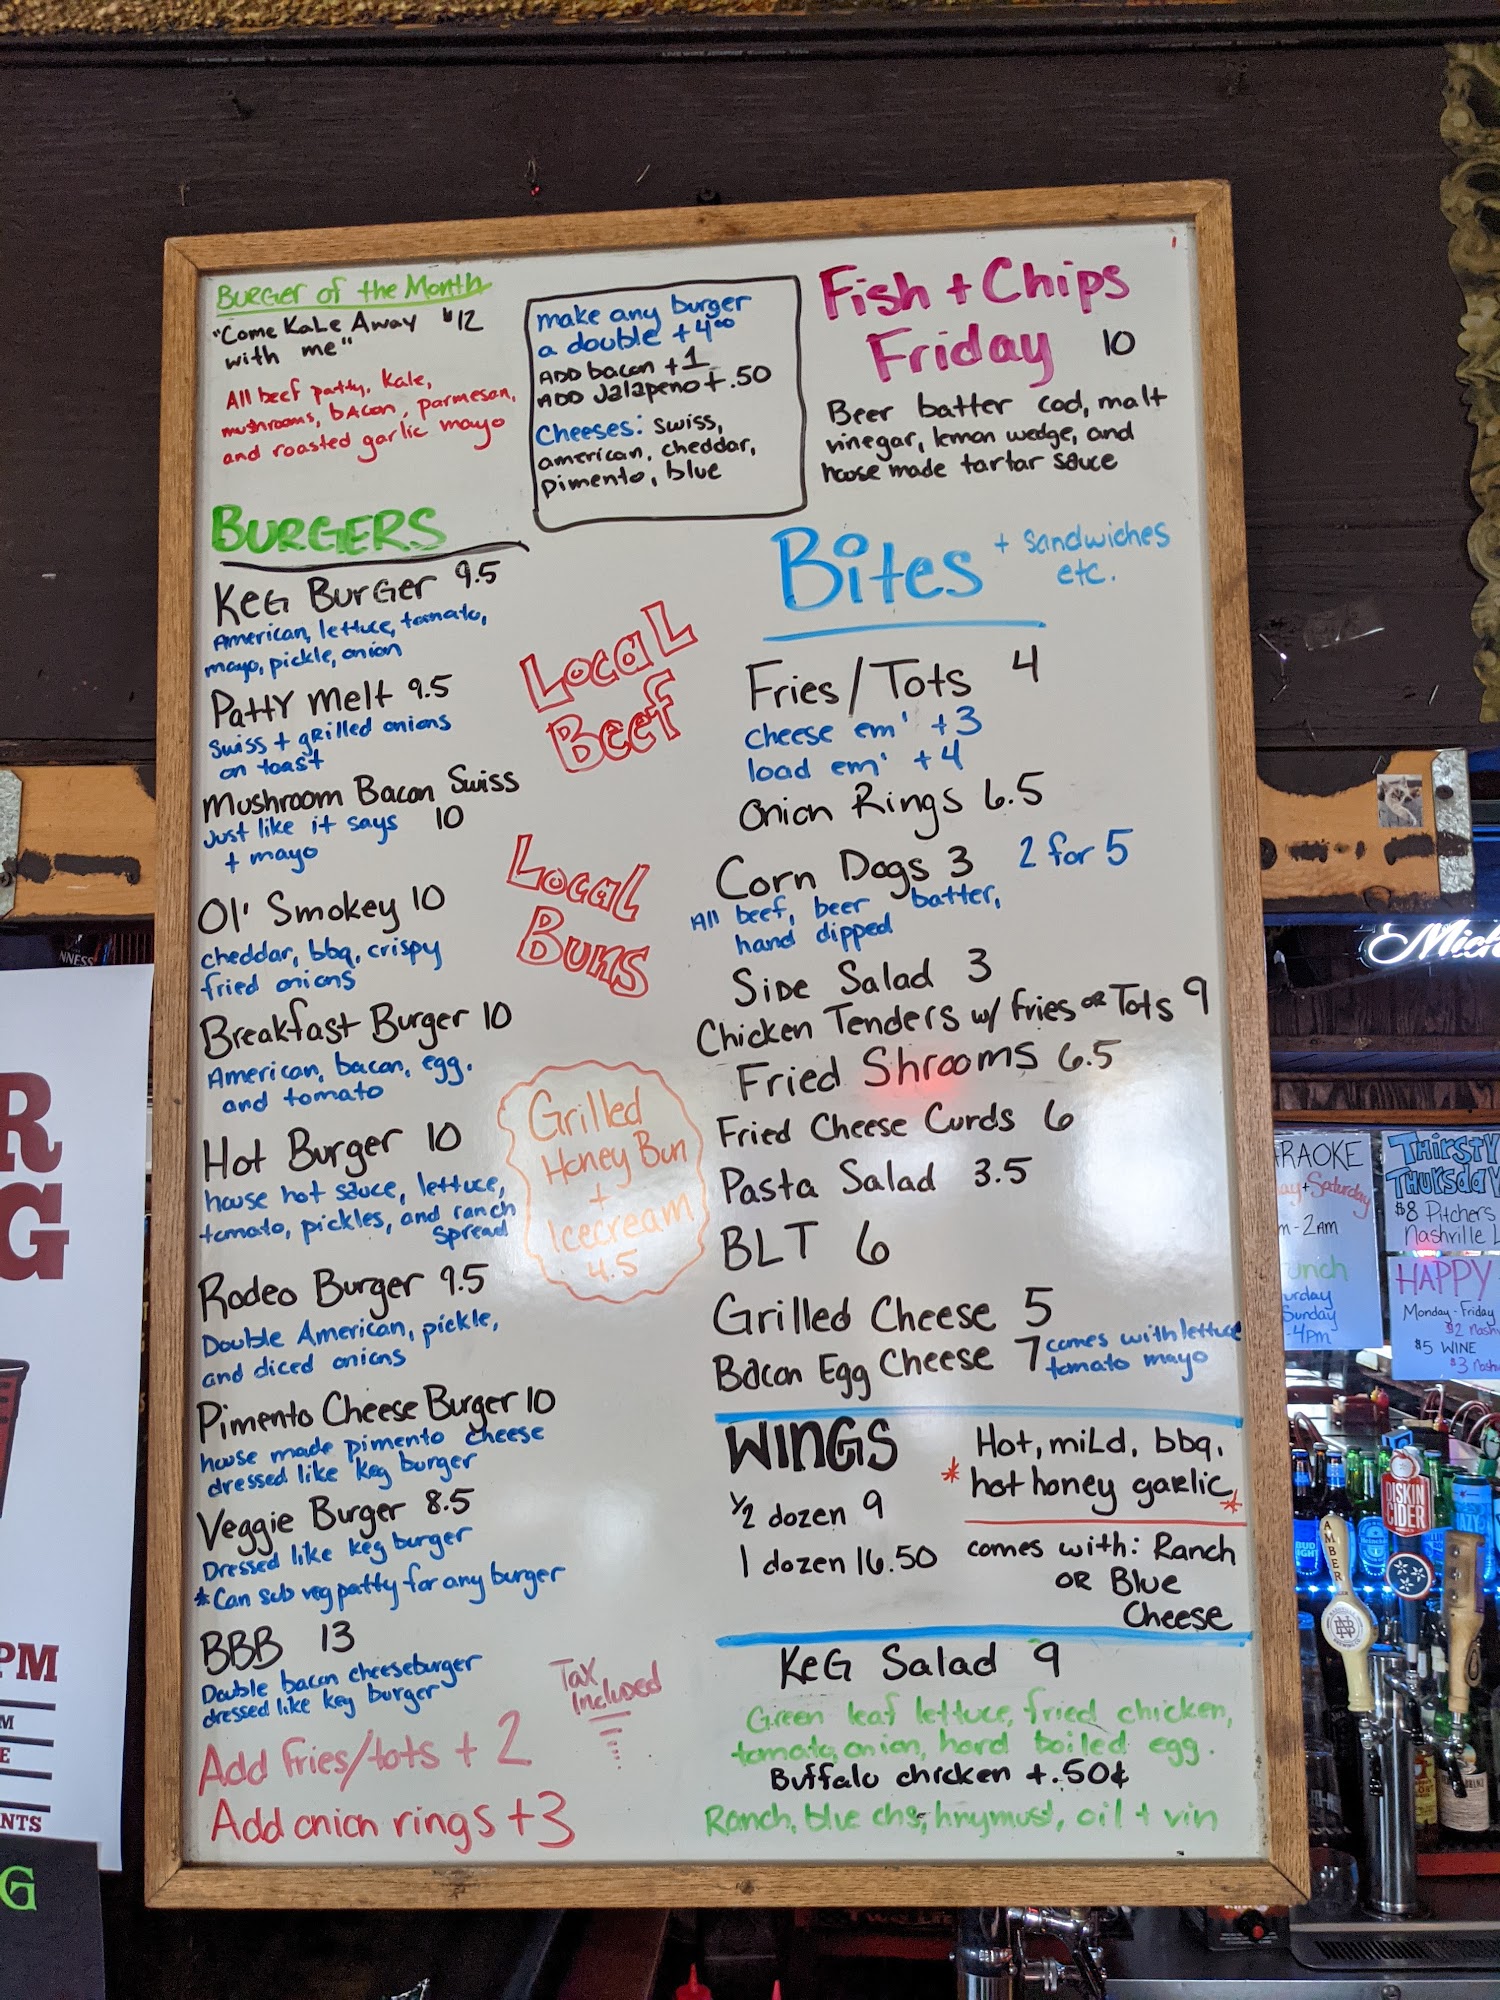 Burger of the Month
"Come Kale Away $12
with me"
All beef patty, kale,
mushrooms, bacon, parmesan,
and roasted garlic mayo
make any burger
a double +4.00
ADD bacon +1
ADD Jalapeno +.50
Cheeses: swiss,
american, cheddar,
pimento, blue
Fish + Chips
Friday 10
Beer batter cod, malt
vinegar, lemon wedge, and
house made tartar sauce
BURGERS
KEG BURGER 9.5
American, lettuce, tomato,
mayo, pickle, onion
Patty melt 9.5
Swiss + grilled onions
on toast
Mushroom Bacon Swiss
Just like it says 10
+ mayo
Ol' Smokey 10
cheddar, bbq, crispy
fried onions
Breakfast Burger 10
American, bacon, egg,
and tomato
Hot Burger 10
house hot sauce, lettuce,
tomato, pickles, and ranch
spread
Rodeo Burger 9.5
Double American, pickle,
and diced onions
Pimento Cheese Burger 10
house made pimento cheese
dressed like keg burger
Veggie Burger 8.5
Dressed like keg burger
*Can sub veg patty for any burger
BBB 13
Double bacon cheeseburger
dressed like keg burger
Add fries/tots + 2
Add onion rings +3
Local
Beef
Local
Buns
Grilled
Honey Bun
+
Icecream
4.5
Tax
Included
Bites + sandwiches
etc.
Fries/Tots 4
cheese em' +3
load em' +4
Onion Rings 6.5
Corn Dogs 3 2 for 5
All beef, beer batter,
hand dipped
Side Salad 3
Chicken Tenders w/ fries or Tots 9
Fried Shrooms 6.5
Fried Cheese Curds 6
Pasta Salad 3.5
BLT 6
Grilled Cheese 5
Bacon Egg Cheese 7 comes with lettuce
tomato mayo
WINGS
1/2 dozen 9
1 dozen 16.50
Hot, mild, bbq,
* hot honey garlic *
comes with: Ranch
OR Blue
Cheese
KEG Salad 9
Green leaf lettuce, fried chicken,
tomato, onion, hard boiled egg.
Buffalo chicken +.50¢
Ranch, blue chs, hnymust, oil + vin
NNESS
R
G
PM
M
E
NTS
G
Mich
RAOKE
ay + Saturday
m-2AM
unch
urday
Sunday
-4pm
THIRSTY
THURSDAY
$8 Pitchers
Nashville L
HAPPY
Monday-Friday
$2 Nash
$5 WINE
$3 Nosh
BUD
LIGHT
AMBER
DISKIN
CIDER
Heineken